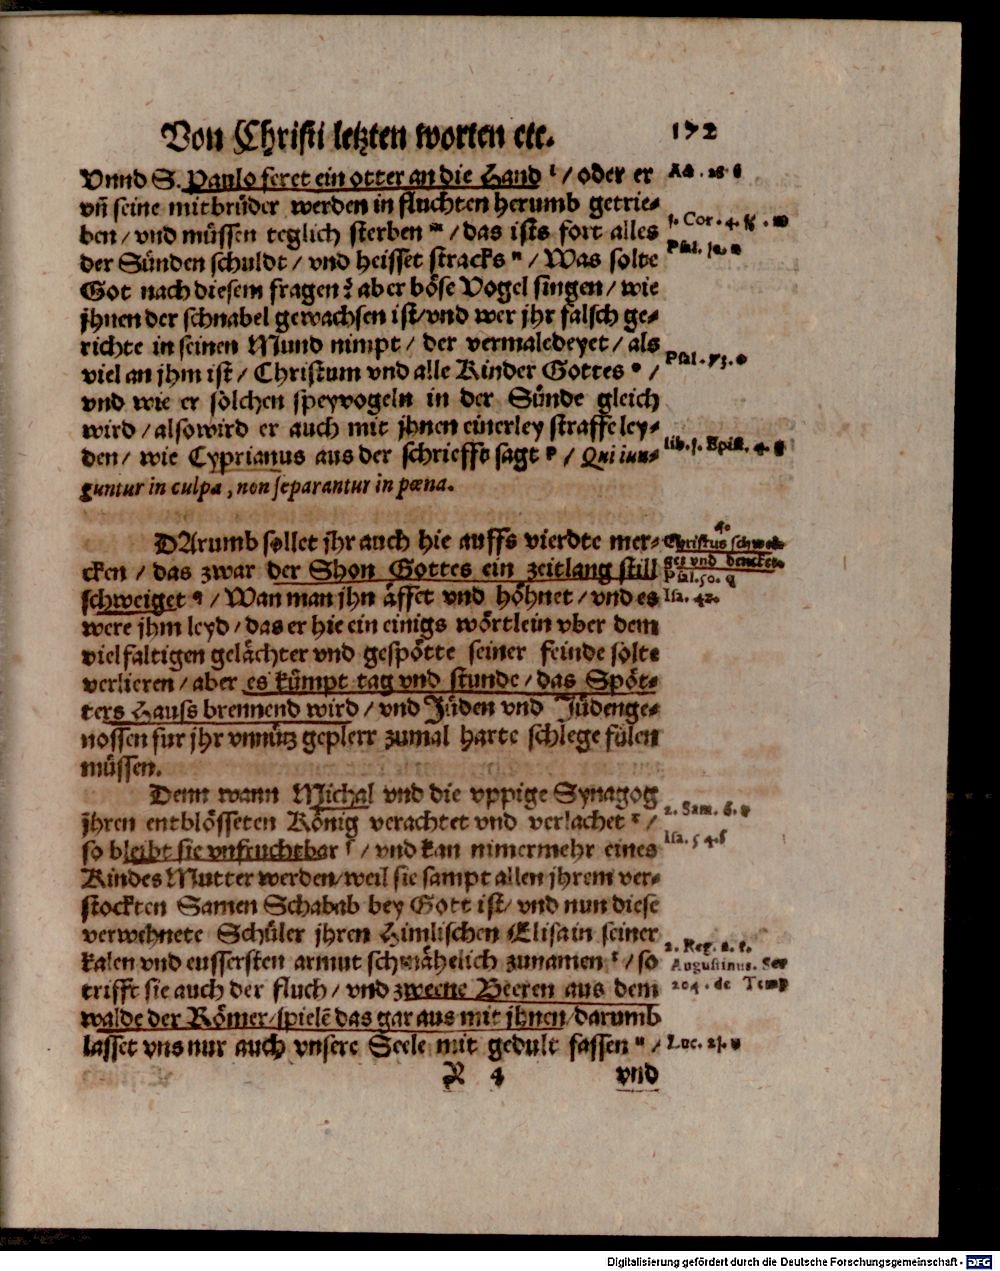 Von Christi letzten worten etc. 172
Vnnd S. Paulo feret ein otter an die Hand l / oder er
vñ seine mitbrüder werden in fluchten herumb getrie-
ben / vnd müssen teglich sterben m / das ists fort alles
der Sünden schuldt / vnd heisset stracks n / Was solte
Got nach diesem fragen? aber böse Vogel singen / wie
jhnen der schnabel gewachsen ist/vnd wer jhr falsch ge-
richte in seinen Mund nimpt / der vermaledeyet / als
viel an jhm ist / Christum vnd alle Kinder Gottes o /
vnd wie er solchen speyvogeln in der Sünde gleich
wird / also wird er auch mit jhnen einerley straffe ley-
den / wie Cyprianus aus der schriefft sagt p / Qui iun-
guntur in culpa, non separantur in pœna.
DArumb sollet jhr auch hie auffs vierdte mer-
cken / das zwar der Shon Gottes ein zeitlang still
schweiget q / Wan man jhn äffet vnd höhnet / vnd es
were jhm leyd / das er hie ein einigs wörtlein vber dem
vielfaltigen gelächter vnd gespötte seiner feinde solte
verlieren / aber es kümpt tag vnd stunde / das Spöt-
ters Hauss brennend wird / vnd Jüden vnd Jüdenge-
nossen fur jhr vnnütz geplerr zumal harte schlege fülen
müssen.
Denn wann Michal vnd die vppige Synagog
jhren entblösseten König verachtet vnd verlachet r /
so bleibt sie vnfruchtbar s / vnd kan nimermehr eines
Kindes Mutter werden/weil sie sampt allen jhrem ver-
stockten Samen Schabab bey Gott ist/ vnd nun diese
verwehnete Schüler jhren Himlischen Elisa in seiner
kalen vnd eussersten armut schmähelich zunamen t / so
trifft sie auch der fluch / vnd zweene Beeren aus dem
walde der Römer/spielẽ das gar aus mit jhnen/darumb
lasset vns nur auch vnsere Seele mit gedult fassen u /
R 4 vnd
1. Cor. 4.
Psal. 73. o
lib. 1. Epist. 4. p
4.
Christus schwei-
get vnd dencket.
Psal. 50. q
Isa. 42.
2. Sam. 6. r
Isa. 54. s
2. Reg. 2. t.
Augustinus. Ser
204. de Temp
Luc. 21. u
Digitalisierung gefördert durch die Deutsche Forschungsgemeinschaft - DFG